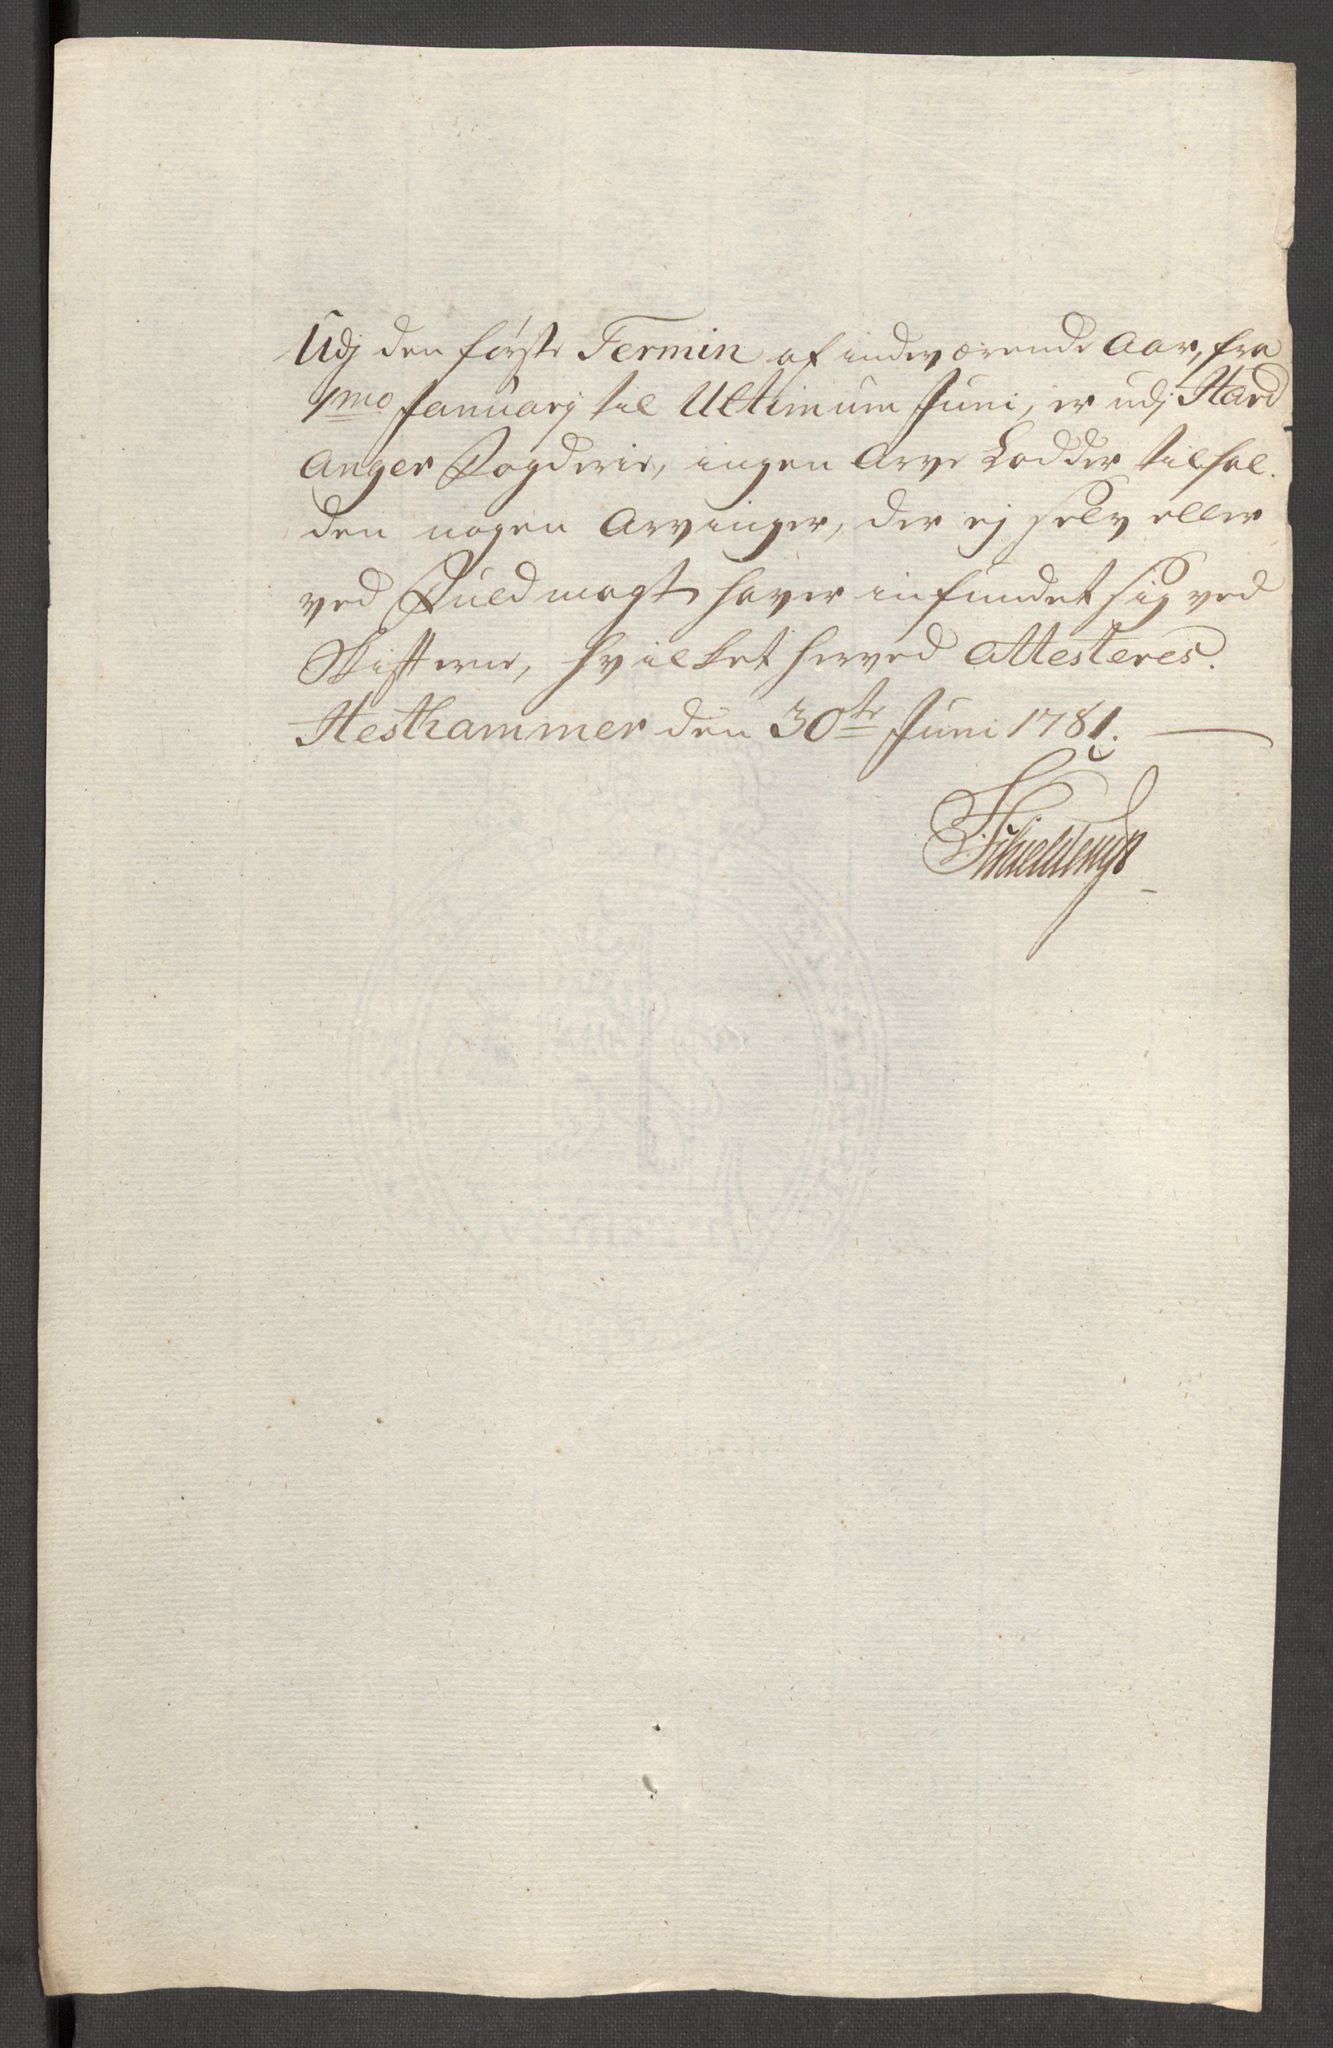 Udj den første Termin af indeværende Aar, fra
1mo Januarij til Ultimum Juni, er udj Hard
Anger Fogderie, ingen Arve Lodder tilfal-
den nogen Arvinger, der ej selv eller
ved Fuldmagt haver infundet sig ved
Skifterne, hvilket herved Attesteres.
Hesthammer den 30te Juni 1781.